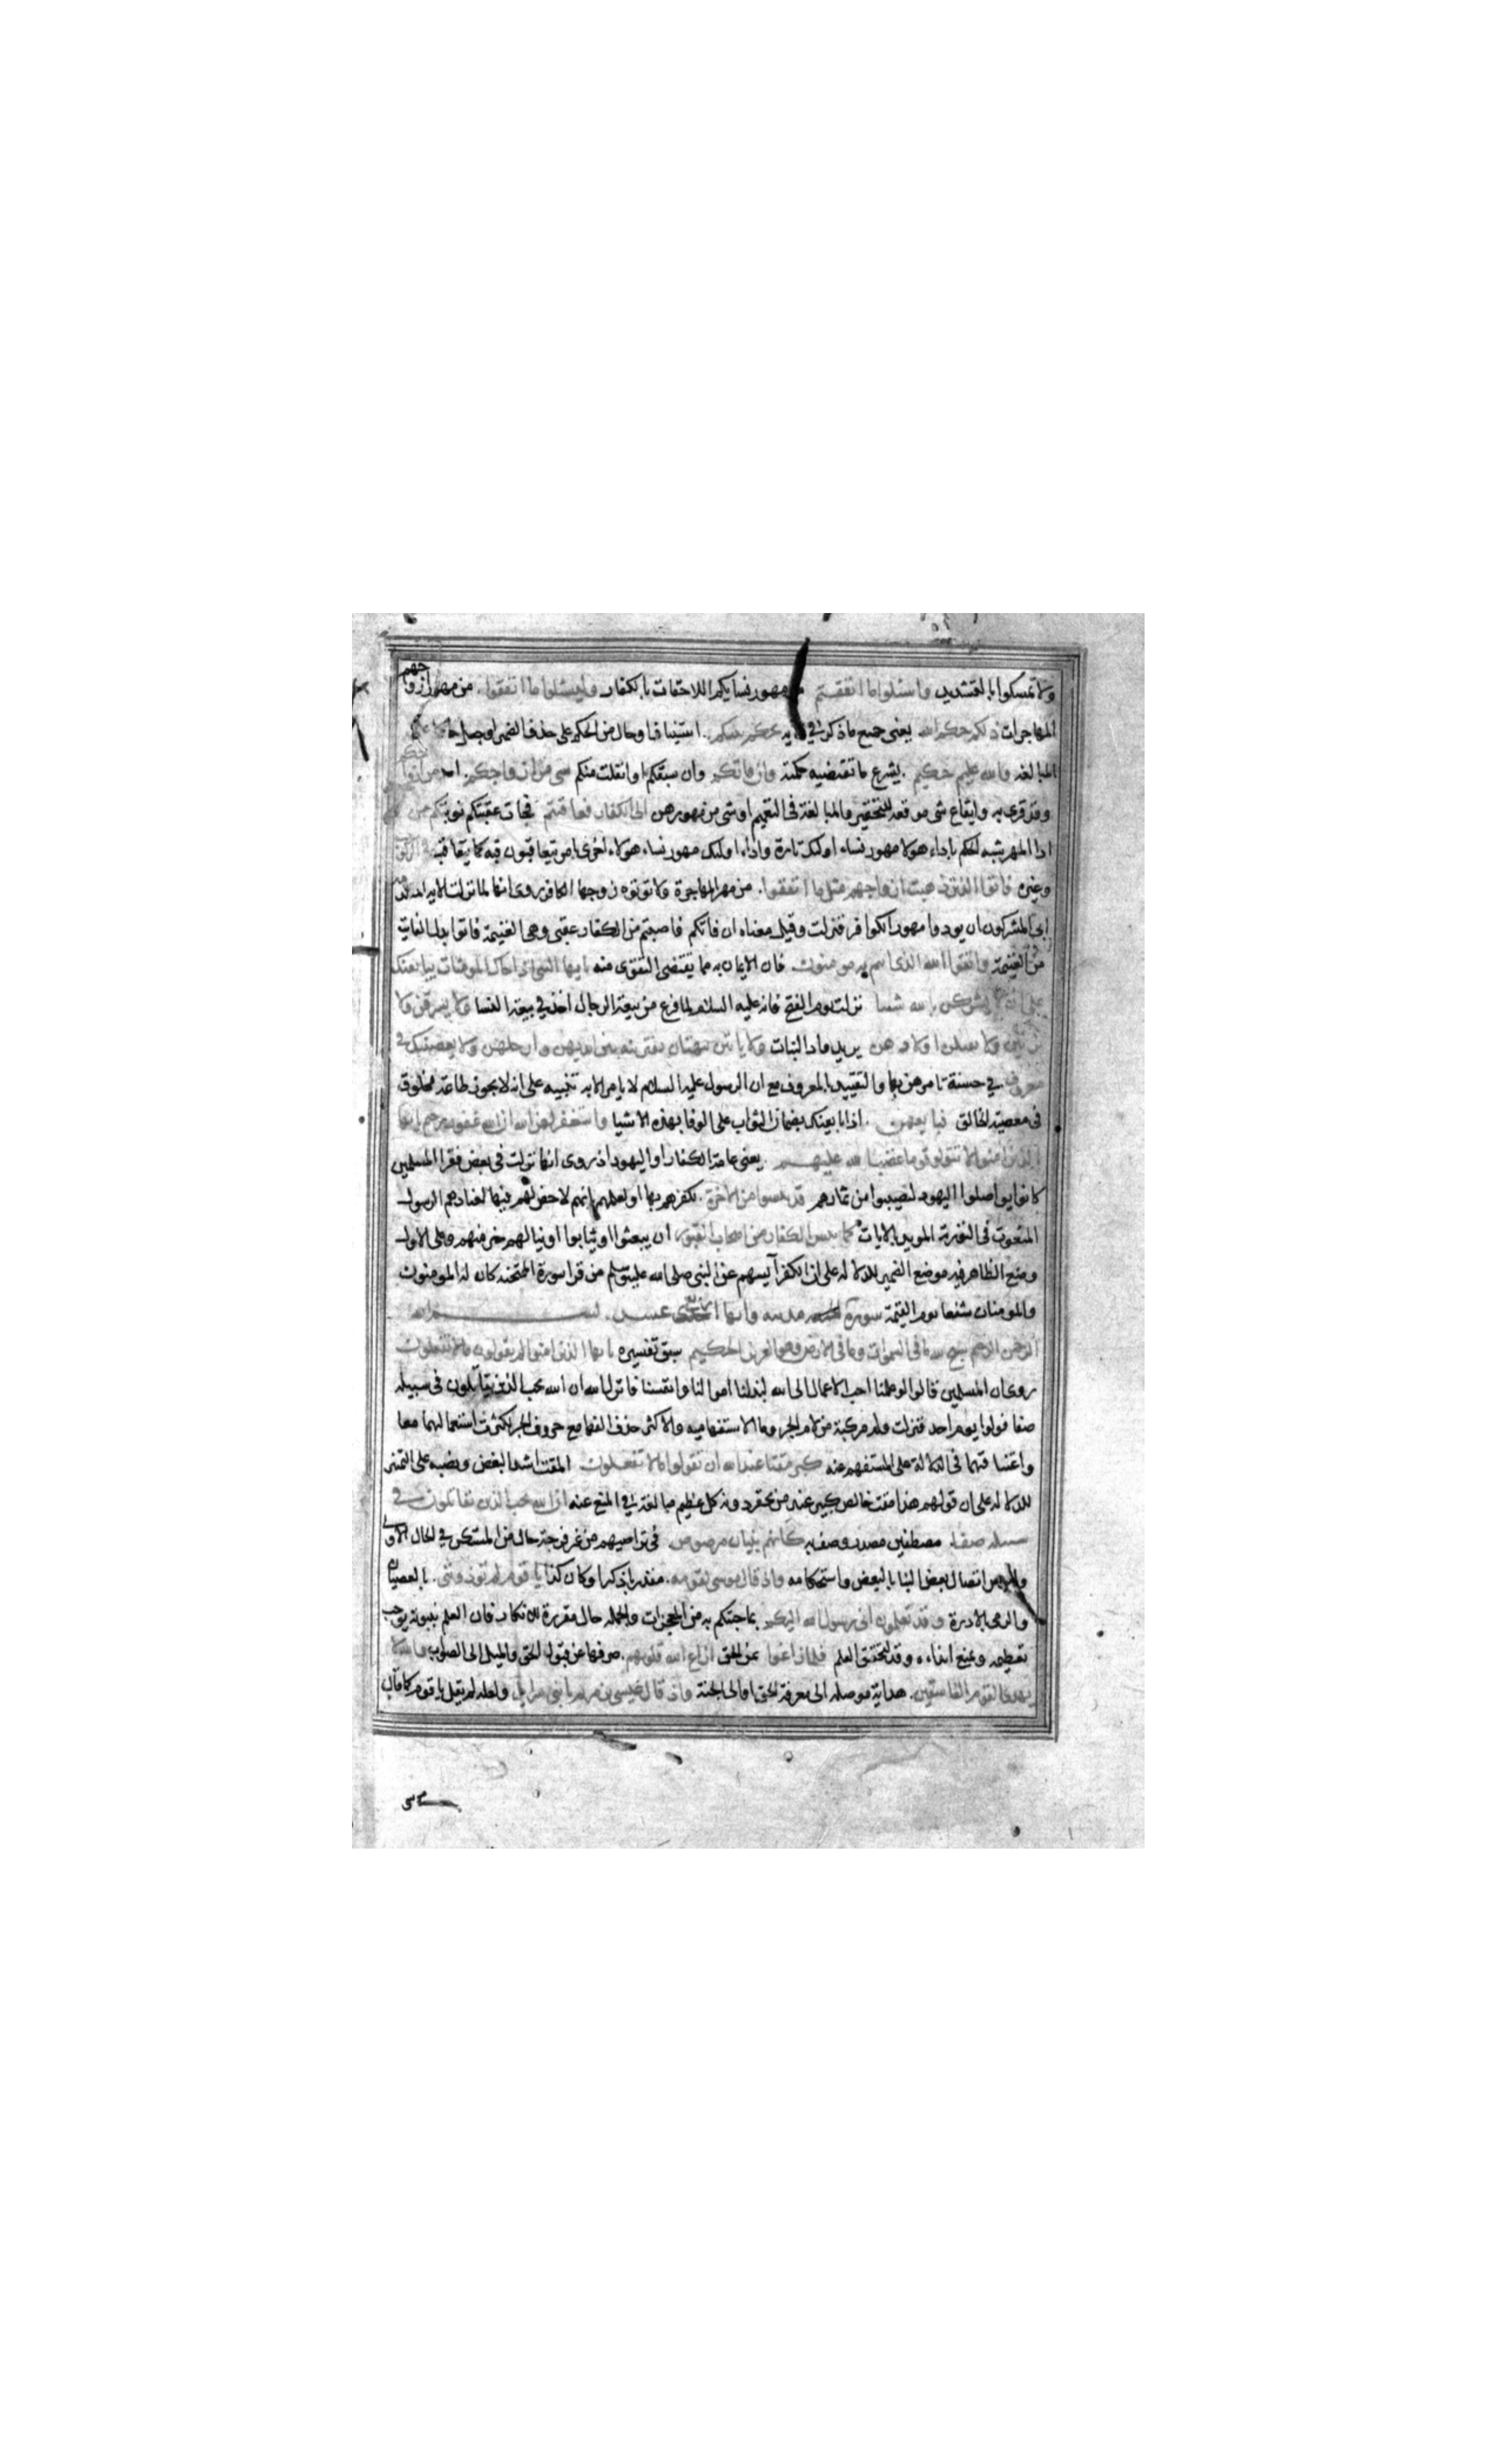 ولا تمسكوا بالتشديد واسئلوا ما انفقتم من مهور نسايكم اللاحقات بالكفار وليسئلوا ما انفقوا من مهور ازواجهم
المهاجرات ذلكم حكم الله يعنى جميع ما ذكر في يحكم بينكم استيناف اوحال من الحكم على حذف الضمير اوجعل
المبالغه والله عليم حكيم يشرع ما تقتضيه حكمته وان فاتكم وان سبقكم او انفلت منكم شى من ازواجكم احد من
وقد قرى به وايقاع شى موقعه للتحقير والمبالغة فى التعميم او شى من مهورهن الى الكفار فعاقبتم فجات عقبتكم نوبتكم من
ادا المهر شبه الحكم باداء هولا مهور نساء اوليك تارة واداء اوليك مهور نساء هولاء اخرى بامر يتعاقبون فيه كما يتعاقب في الركوب
وغيره فاتوا الذين ذهبت ازواجهم مثل ما انفقوا من مهر المهاجرة ولا توتوه زوجها الكافر روى انها لما نزلت الايه المتقدمه
ابى المشركون ان يودوا مهور الكوافر فنزلت وقيل معناه ان فاتكم فاصبتم من الكفار عقبى وهى الغنيمة فاتوا بدل الفايت
من الغنيمة واتقوا الله الذى انتم به مومنون فان الايمان به مما يقتضى التقوى منه يايها النبى اذا جاك المومنات يبايعنك
على ان لا يشركن بالله شيا نزلت يوم الفتح فانه عليه السلام لما فرغ من بيعة الرجال اخذ في بيعة النسا ولا يسرقن ولا
يزنين ولا يقتلن اولادهن يريد واد البنات ولا ياتين ببهتان يفترينه بين ايديهن وارجلهن ولا يعصينك في
معروف في حسنة تامرهن بها والتقييد بالمعروف مع ان الرسول عليه السلام لا يامر الا به تنبيه على انه لا يجوز طاعة مخلوق
فى معصية الخالق فبايعهن اذا بايعنك بضمان الثواب على الوفا بهذه الاشيا واستغفر لهن الله ان الله غفور رحيم يايها
الذين امنوا لا تتولوا قوما غضب الله عليهم يعنى عامة الكفار او اليهود اذ روى انها نزلت فى بعض فقرا المسلمين
كانوا يواصلوا اليهود ليصيبوا من ثمارهم قد يئسوا من الاخرة لكفرهم بها او لعلمهم بانهم لا حظ لهم فيها لعنادهم الرسول
المنعوت فى التورية المويد بالايات كما يئس الكفار من اصحاب القبور ان يبعثوا او يثابوا او ينالهم خير منهم وعلى الاول
وضع الظاهر فيه موضع الضمير للدلاله على ان الكفر آيسهم عن النبى صلى الله عليه وسلم من قرا سورة الممتحنه كان له المومنون
والمومنات شفعا يوم القيمة سورة مدنيه وايها عشر بسم الله
الرحمن الرحيم سبح لله ما فى السموات وما فى الارض وهو العزيز الحكيم سبق تفسيره يايها الذين امنوا لم تقولون ما لا تفعلون
روى ان المسلمين قالوا لو علمنا احب الاعمال الى الله لبذلنا اموالنا وانفسنا فانزل الله ان الله يحب الذين يقاتلون فى سبيله
صفا فولوا يوم احد فنزلت ولم مركبة من لام الجر وما الاستفهاميه والاكثر حذف الفها مع حروف الجر لكثرت استعمالهما معا
واعتناقهما فى الدلالة على المستفهم عنه كبر مقتا عند الله ان تقولوا ما لا تفعلون المقت اشد البغض ونصبه على التميز
للدلاله على ان قولهم هذا مقت خالص كبير عند من يحقر دونه كل عظيم مبالغة في المنع عنه ان الله يحب الذين يقاتلون في
سبيله صفا مصطفين مصدر وصف به كانهم بنيان مرصوص فى تراصهم من غير فرجة حال من المستكن في الحال الاولى
والرص اتصال بعض البنا بالبعض واستحكامه واذ قال موسى لقومه مقدر باذكر او كان كذا يا قوم لم توذوننى بالعصيان
والرمى بالادرة وقد تعلمون انى رسول الله اليكم بما جئتكم به من المعجزات والجمله حال مقررة للانكار فان العلم بنبوته يوجب
تعظيمه ويمنع ايذاءه وقد لتحقيق العلم فلما زاغوا عن الحق ازاغ الله قلوبهم صرفها عن قبول الحق والميل الى الصواب والله لا
يهدى القوم الفاسقين هداية موصله الى معرفة الحق او الى الجنة واذ قال عيسى بن مريم يا بنى اسرايل ولعله لم يقل يا قوم كما قال